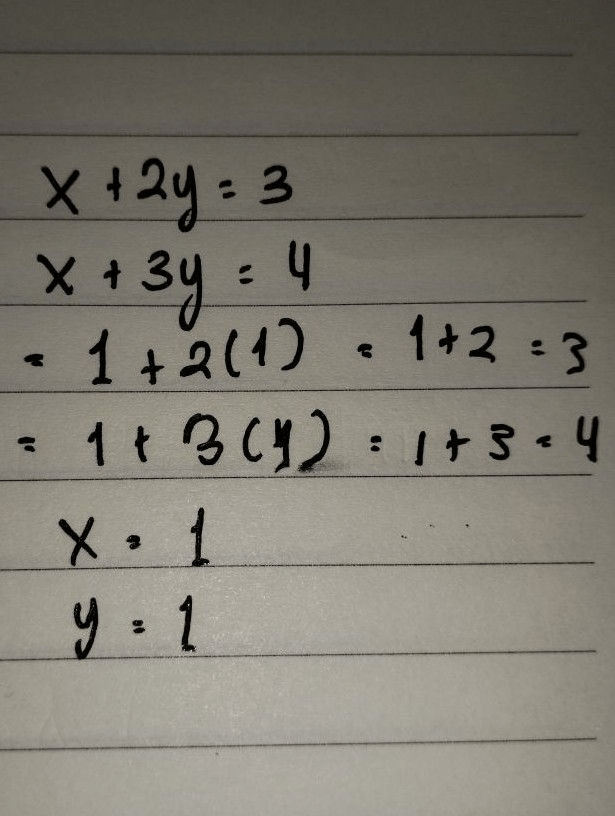 x + 2y = 3
x + 3y = 4
= 1 + 2(1) = 1 + 2 = 3
= 1 + 3(y) = 1 + 3 = 4
x = 1
y = 1